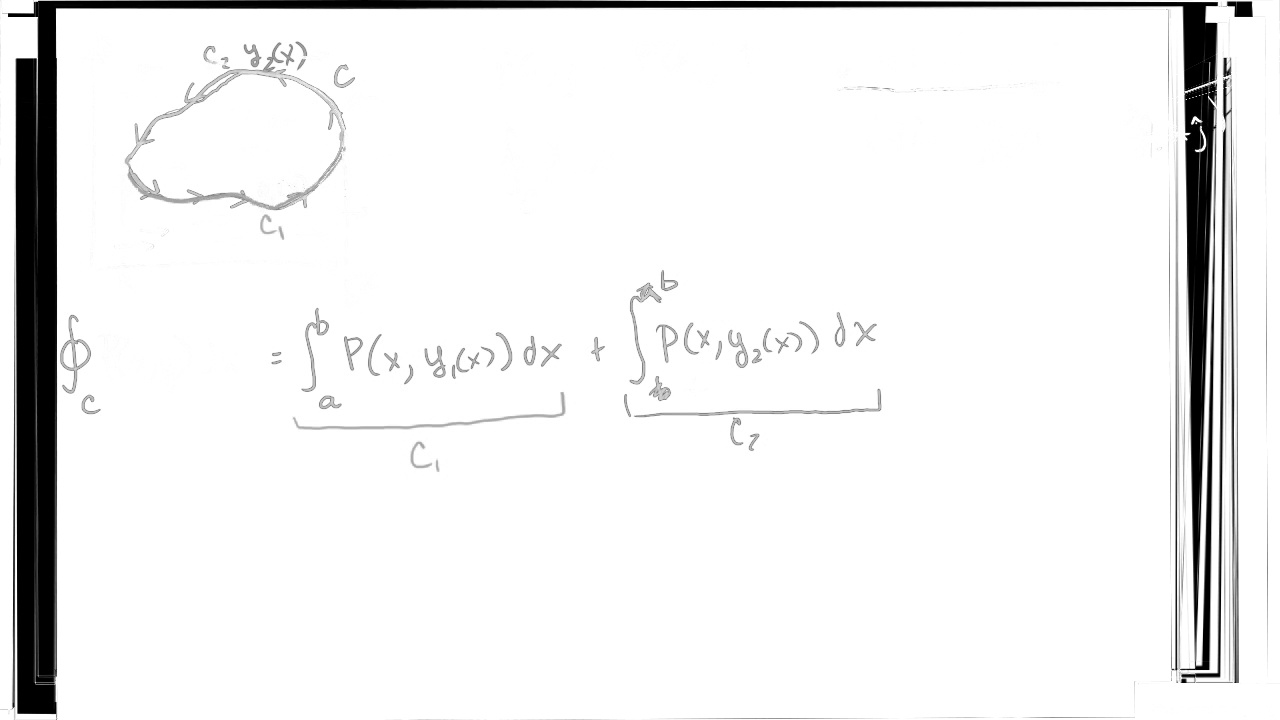 C₂ y₂(x)
C
C₁
ĵ
∮_C = ∫_a^b P(x, y₁(x)) dx + ∫^b P(x, y₂(x)) dx
C₁ C₂